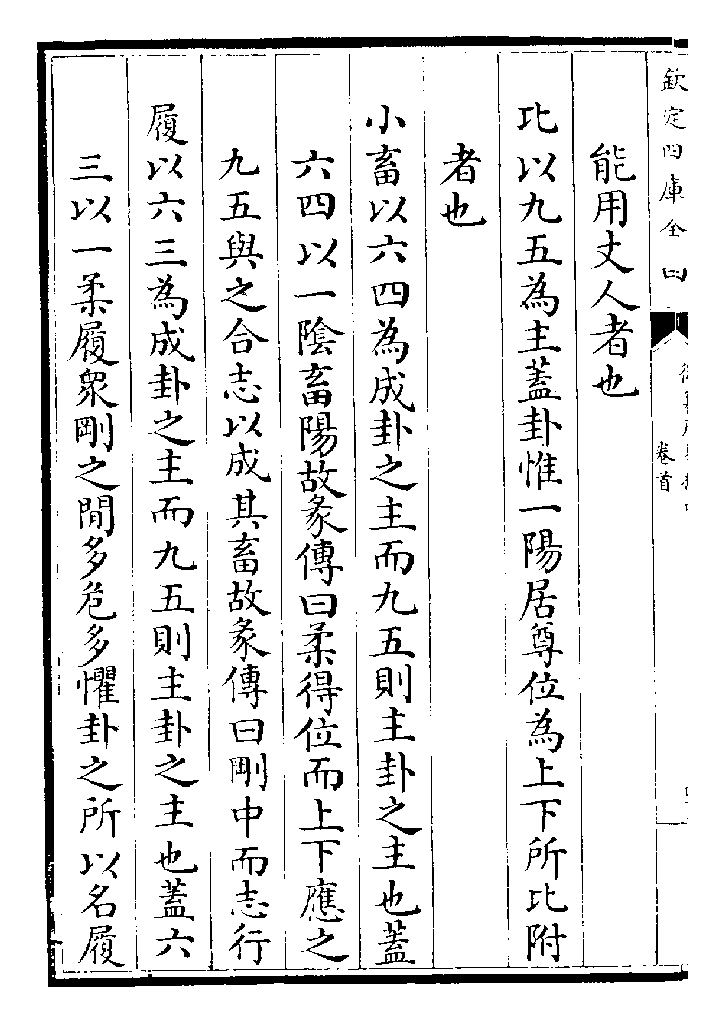 欽定四庫全
卷首
能用丈人者也
比以九五為主蓋卦惟一陽居尊位為上下所比附
者也
小畜以六四為成卦之主而九五則主卦之主也蓋
六四以一陰畜陽故彖傳曰柔得位而上下應之
九五與之合志以成其畜故彖傳曰剛中而志行
履以六三為成卦之主而九五則主卦之主也蓋六
三以一柔履衆剛之間多危多懼卦之所以名履